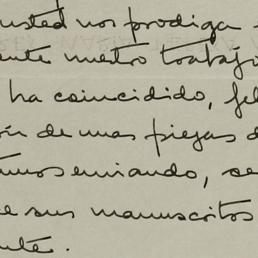 usted nos prodiga
ente nuestro trabajo
ha coincidido, fel
ón de unas piezas d
tamos enviando, se
e sus manuscritos
nte.